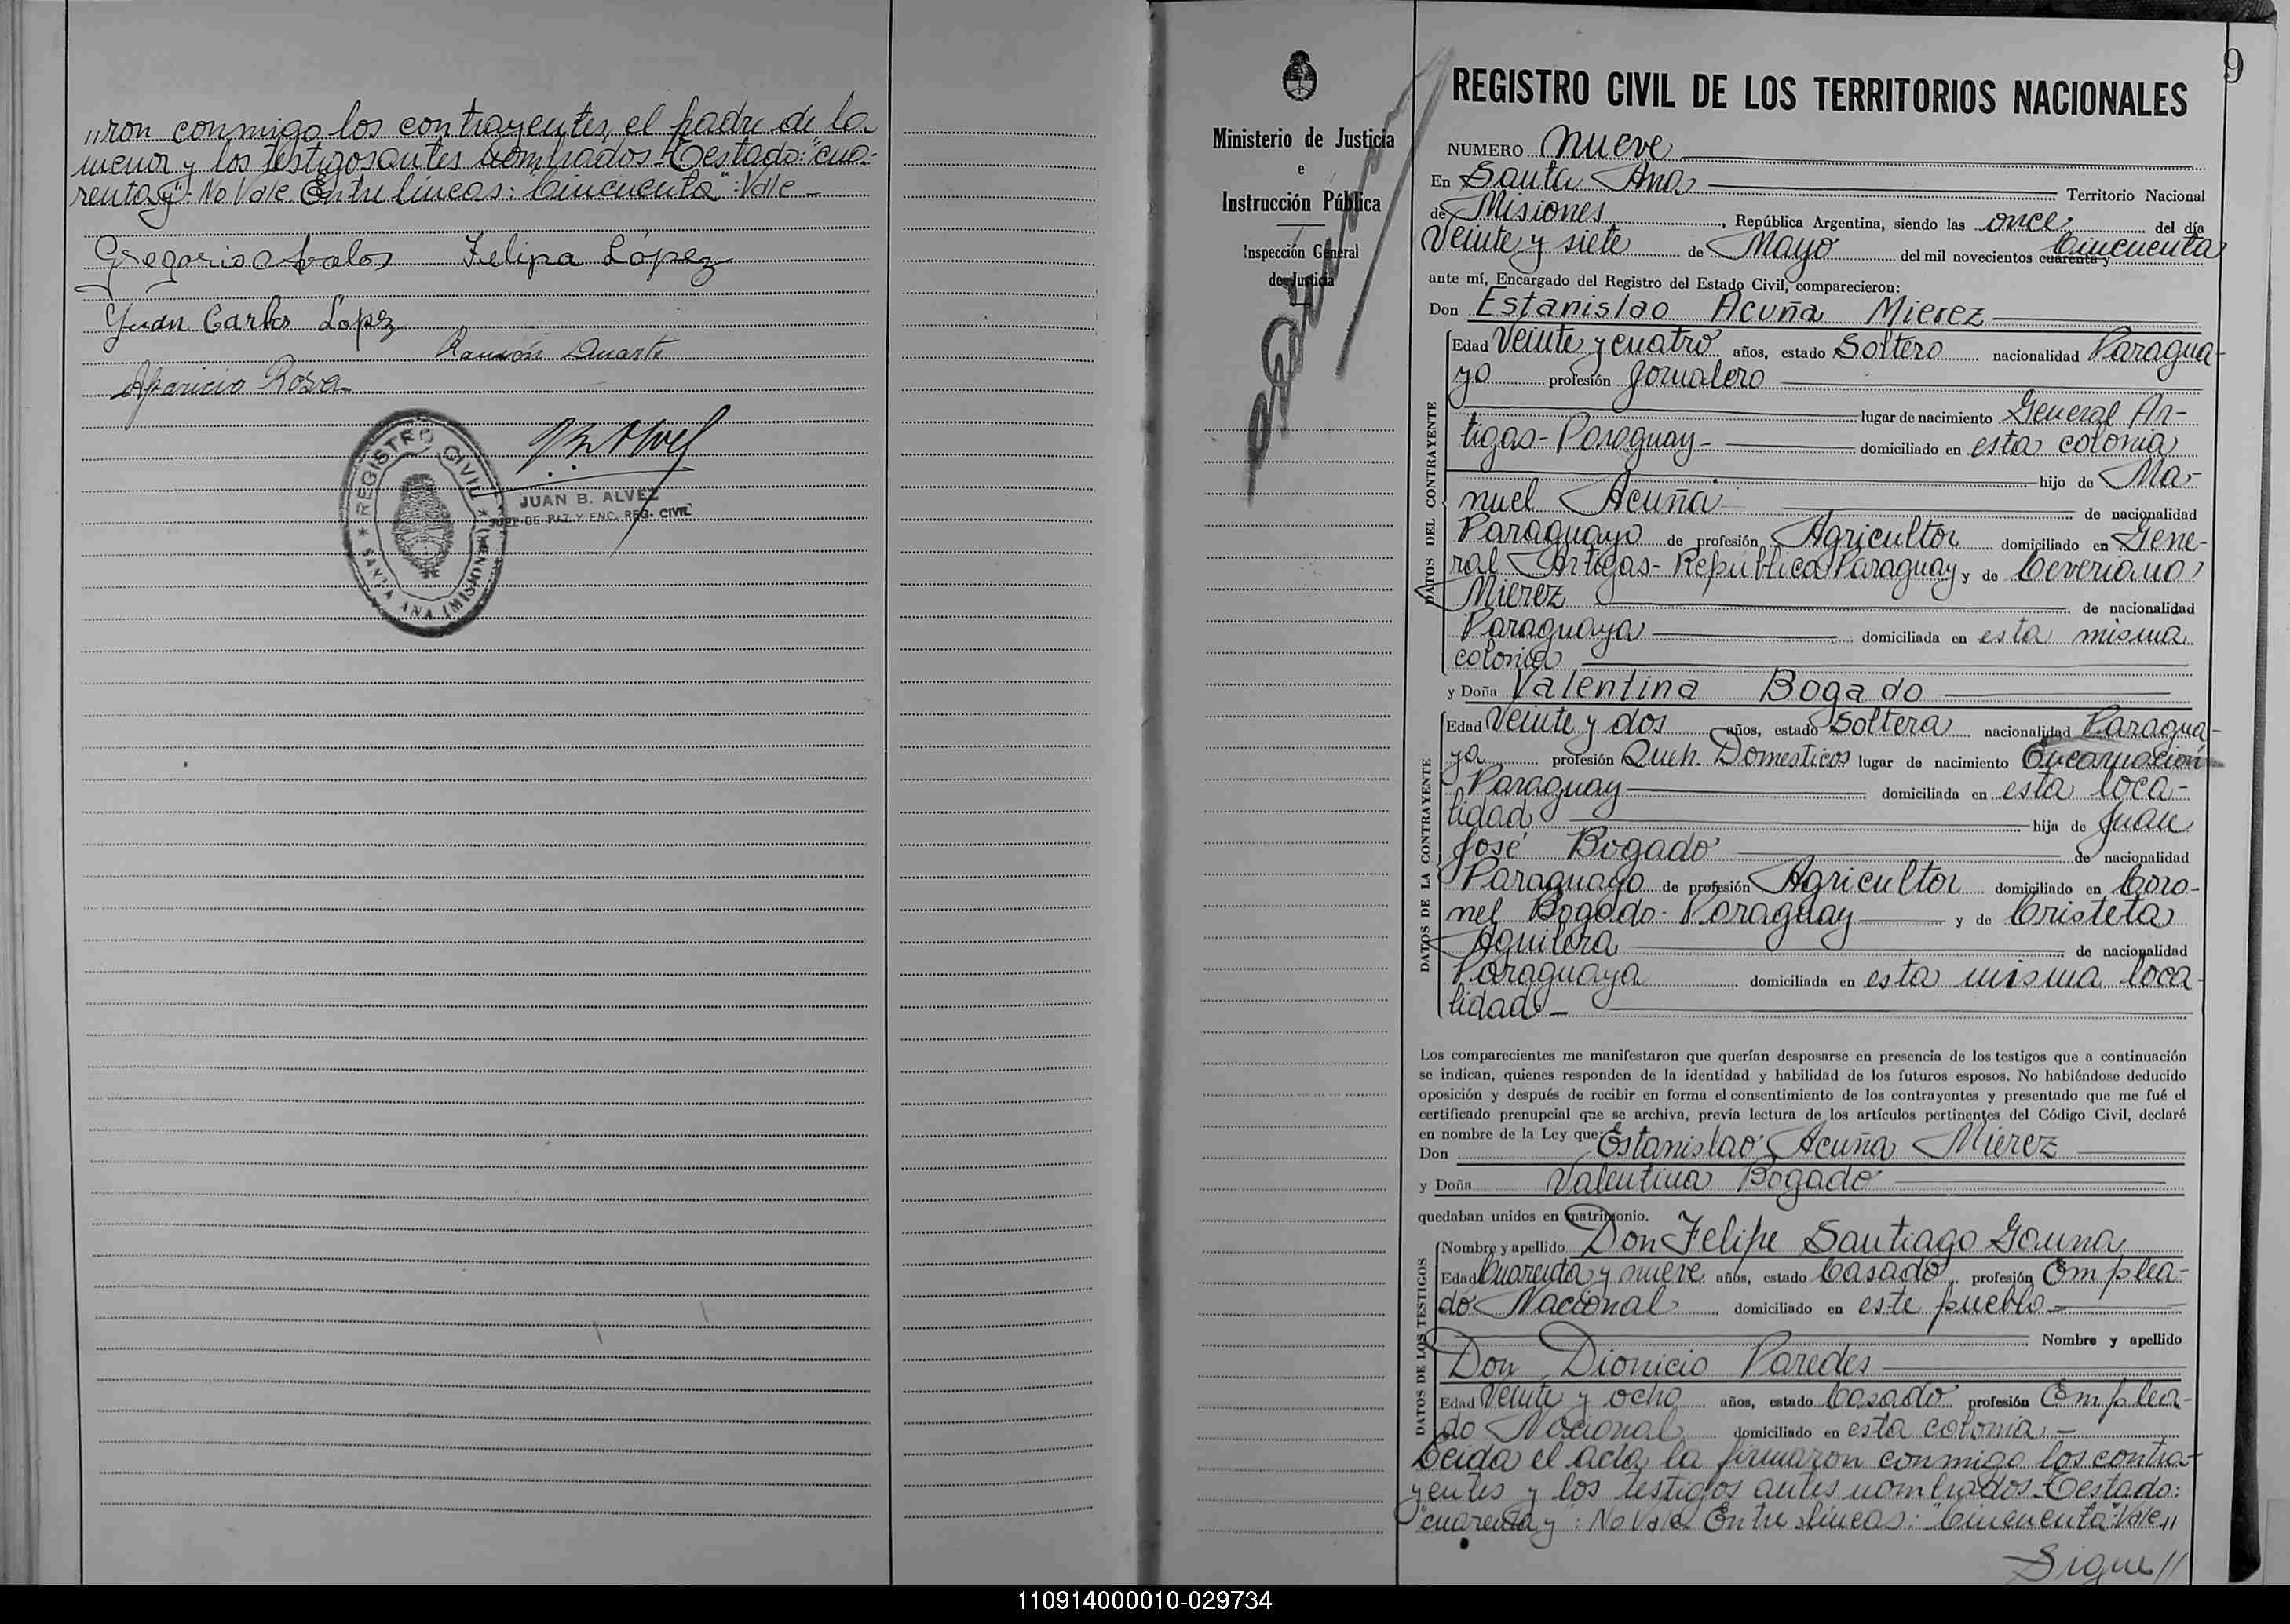 „ron conmigo los contrayentes, el padre de la
menor y los testigos antes nombrados-Testado: "cua-
renta y": No Vale. Entre líneas: "Cincuenta": Vale-
Gregorio Avalos Felipa López
Juan Carlos López
Ramón Duarte
Aparicio Rosa
REGISTRO CIVIL
* SANTA ANA (MISIONES) *
JUAN B. ALVEZ
JUEZ DE PAZ Y ENC. REG. CIVIL
9
Ministerio de Justicia
e
Instrucción Pública
Inspección General
de Justicia
REGISTRO CIVIL DE LOS TERRITORIOS NACIONALES
NUMERO nueve
En Santa Ana Territorio Nacional
de Misiones, República Argentina, siendo las once, del día
Veinte y siete de Mayo del mil novecientos cuarenta y Cincuenta
ante mí, Encargado del Registro del Estado Civil, comparecieron:
Don Estanislao Acuña Mierez
DATOS DEL CONTRAYENTE
Edad Veinte y cuatro años, estado Soltero nacionalidad Paragua-
yo profesión Jornalero
lugar de nacimiento General Ar-
tigas-Paraguay- domiciliado en esta colonia
hijo de Ma-
nuel Acuña de nacionalidad
Paraguayo de profesión Agricultor domiciliado en Gene-
ral Artigas-República Paraguay y de Ceveriana
Mierez de nacionalidad
Paraguaya domiciliada en esta misma
colonia
y Doña Valentina Bogado
DATOS DE LA CONTRAYENTE
Edad Veinte y dos años, estado Soltera nacionalidad Paragua-
ya profesión Queh. Domesticos lugar de nacimiento Encarnación
Paraguay domiciliada en esta loca-
lidad hija de Juan
José Bogado de nacionalidad
Paraguayo de profesión Agricultor domiciliado en Coro-
nel Bogado-Paraguay y de Cristeta
Aguilera de nacionalidad
Paraguaya domiciliada en esta misma loca-
lidad-
Los comparecientes me manifestaron que querían desposarse en presencia de los testigos que a continuación
se indican, quienes responden de la identidad y habilidad de los futuros esposos. No habiéndose deducido
oposición y después de recibir en forma el consentimiento de los contrayentes y presentado que me fué el
certificado prenupcial que se archiva, previa lectura de los artículos pertinentes del Código Civil, declaré
en nombre de la Ley que:
Don Estanislao Acuña Mierez
y Doña Valentina Bogado
quedaban unidos en matrimonio.
DATOS DE LOS TESTIGOS
Nombre y apellido Don Felipe Santiago Gauna
Edad Cuarenta y nueve años, estado Casado profesión Emplea-
do Nacional domiciliado en este pueblo-
Nombre y apellido
Don Dionicio Paredes
Edad Veinte y ocho años, estado Casado profesión Emplea-
do Nacional domiciliado en esta colonia-
Leida el acta, la firmaron conmigo los contra-
yentes y los testigos antes nombrados-Testado:
"cuarenta y": No Vale. Entre líneas: "Cincuenta": Vale„
Sigue//
110914000010-029734